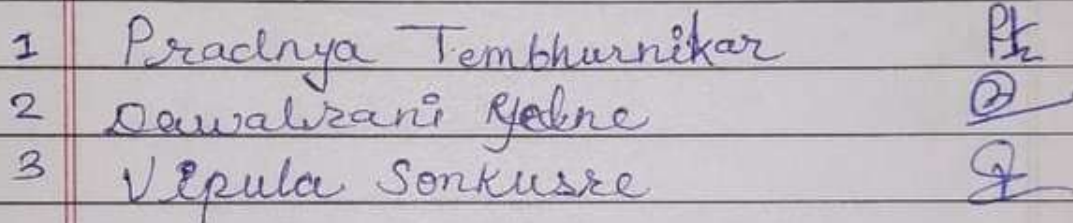 1 Pradnya Tembhurnikar
2 Dawalirani
3 Vipula Sonkusre